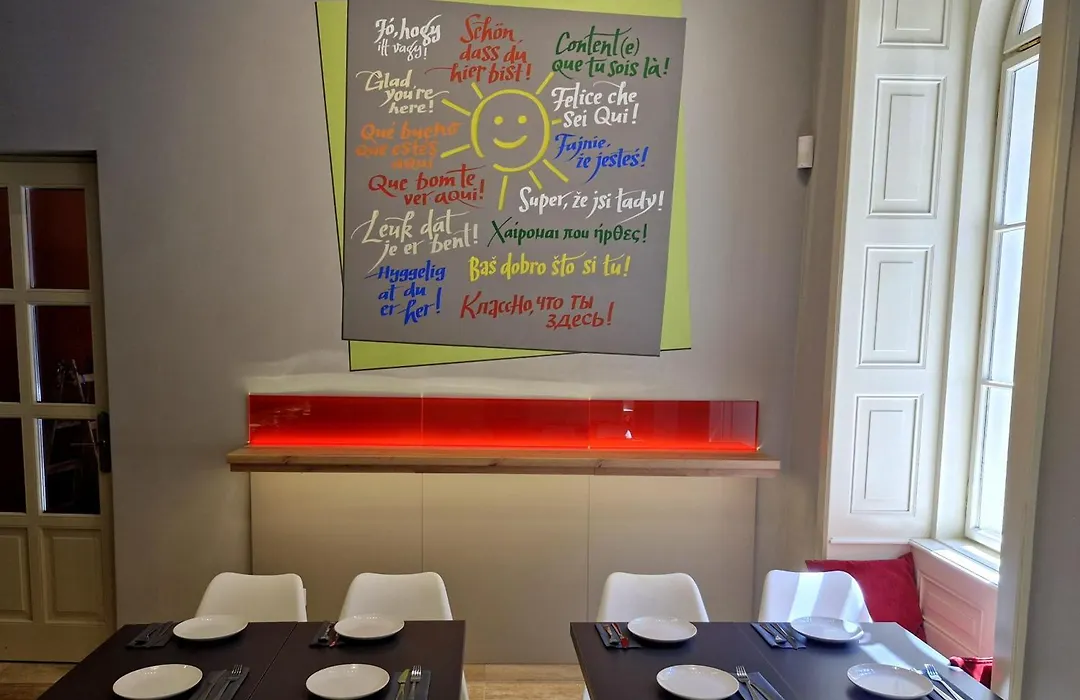 Jó, hogy
itt vagy!
Schön,
dass du
hier bist!
Content(e)
que tu sois là!
Glad
you're
here!
Felice che
sei Qui!
Qué bueno
que estés
aquí
Fajnie,
że jesteś!
Que bom te
ver aqui!
Super, že jsi tady!
Leuk dat
je er bent!
Χαίρομαι που ήρθες!
Hyggelig
at du
er her!
Baš dobro što si tu!
Классно, что ты
здесь!